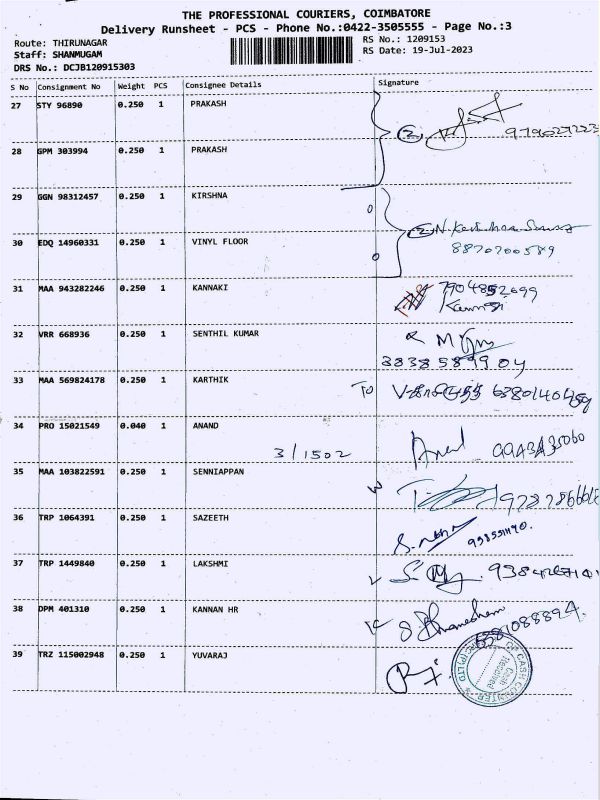 THE PROFESSIONAL COURIERS, COIMBATORE
Delivery Runsheet - PCS - Phone No.:0422-3505555 - Page No.:3
Route: THIRUNAGAR
RS No.: 1209153
Staff: SHANMUGAM
RS Date: 19-Jul-2023
DRS No.: DCJB120915303
S No Consignment No Weight PCS Consignee Details Signature
27 STY 96890 0.250 1 PRAKASH
28 GPM 303994 0.250 1 PRAKASH
29 GGN 98312457 0.250 1 KIRSHNA
30 EDQ 14960331 0.250 1 VINYL FLOOR
8870700589
31 MAA 943282246 0.250 1 KANNAKI
32 VRR 668936 0.250 1 SENTHIL KUMAR
33 MAA 569824178 0.250 1 KARTHIK
TO
34 PRO 15021549 0.040 1 ANAND
3/1502
35 MAA 103822591 0.250 1 SENNIAPPAN
36 TRP 1064391 0.250 1 SAZEETH
37 TRP 1449840 0.250 1 LAKSHMI
38 DPM 401310 0.250 1 KANNAN HR
39 TRZ 115002948 0.250 1 YUVARAJ
CASH COUNTER
Cash
Received